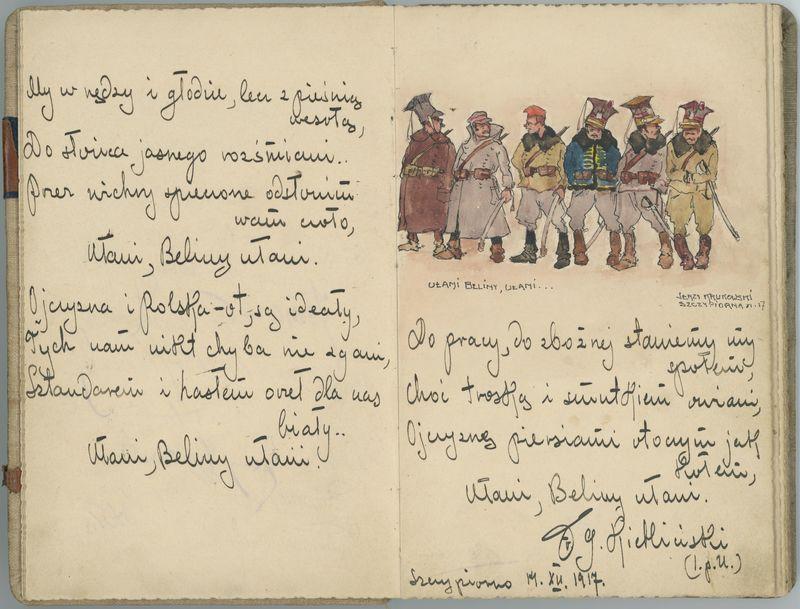 My w nędzy i głodzie, lecz z pieśnią
wesołą,
Do słońca jasnego roześmiani..
Przez wichry spieczone odsłonim
wam czoło,
Ułani, Beliny ułani.
Ojczyzna i Polska - ot, są ideały,
Tych nam nikt chyba nie zgani,
Sztandarem i hasłem orzeł dla nas
biały..
Ułani, Beliny ułani.
UŁANI BELINY, UŁANI...
JERZY KRUKOWSKI
SZCZYPIORNA XI. 17
Do pracy, do zbożnej staniemy my
społem,
Choć troską i smutkiem owiani,
Ojczyznę piersiami otoczym jak
kołem,
Ułani, Beliny ułani.
(1.p.U.)
Szczypiorno 14. XII. 1917.